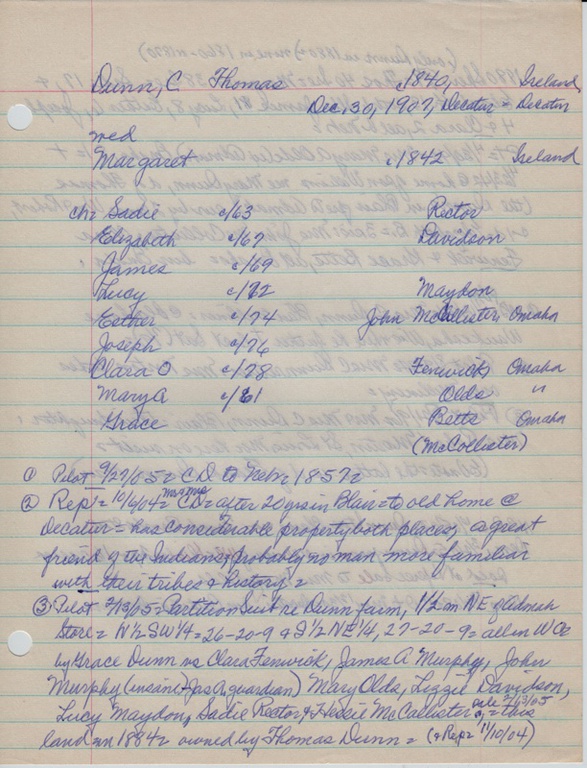 Dunn, C Thomas c1840, Ireland
Dec. 30, 1907, Decatur = Decatur
wed
Margaret c1842 Ireland
ch: Sadie c/63 Rector
Elizabeth c/67 Davidson
James c/69
Lucy c/72 Maydon
Esther c/74 John McCollister Omaha
Joseph c/76
Clara O c/78 Fenwick Omaha
Mary A c/81 Olds "
Grace Betts Omaha
(McCollister)
① Pilot 9/27/05 = CD to Nebr 1857 =
② Rep = 10/6/04 = Mr & Mrs CD = after 20 yrs in Blair = to old home @
Decatur = has considerable property both places, a great
friend of the Indians & probably no man more familiar
with their tribes & history =
③ Pilot 2/13/05 = Partition Suit re Dunn farm, 1/2 m NE of
Store = N 1/2 SW 1/4 = 26-20-9 & S 1/2 NE 1/4, 27-20-9 = all in W Co
by Grace Dunn vs Clara Fenwick, James A Murphy, John
Murphy (insane & Jas A guardian) Mary Olds, Lizzie Davidson,
Lucy Maydon, Sadie Rector, & Hessie McCollister = this
land in 1884 = owned by Thomas Dunn = (& Rep = 11/10/04)